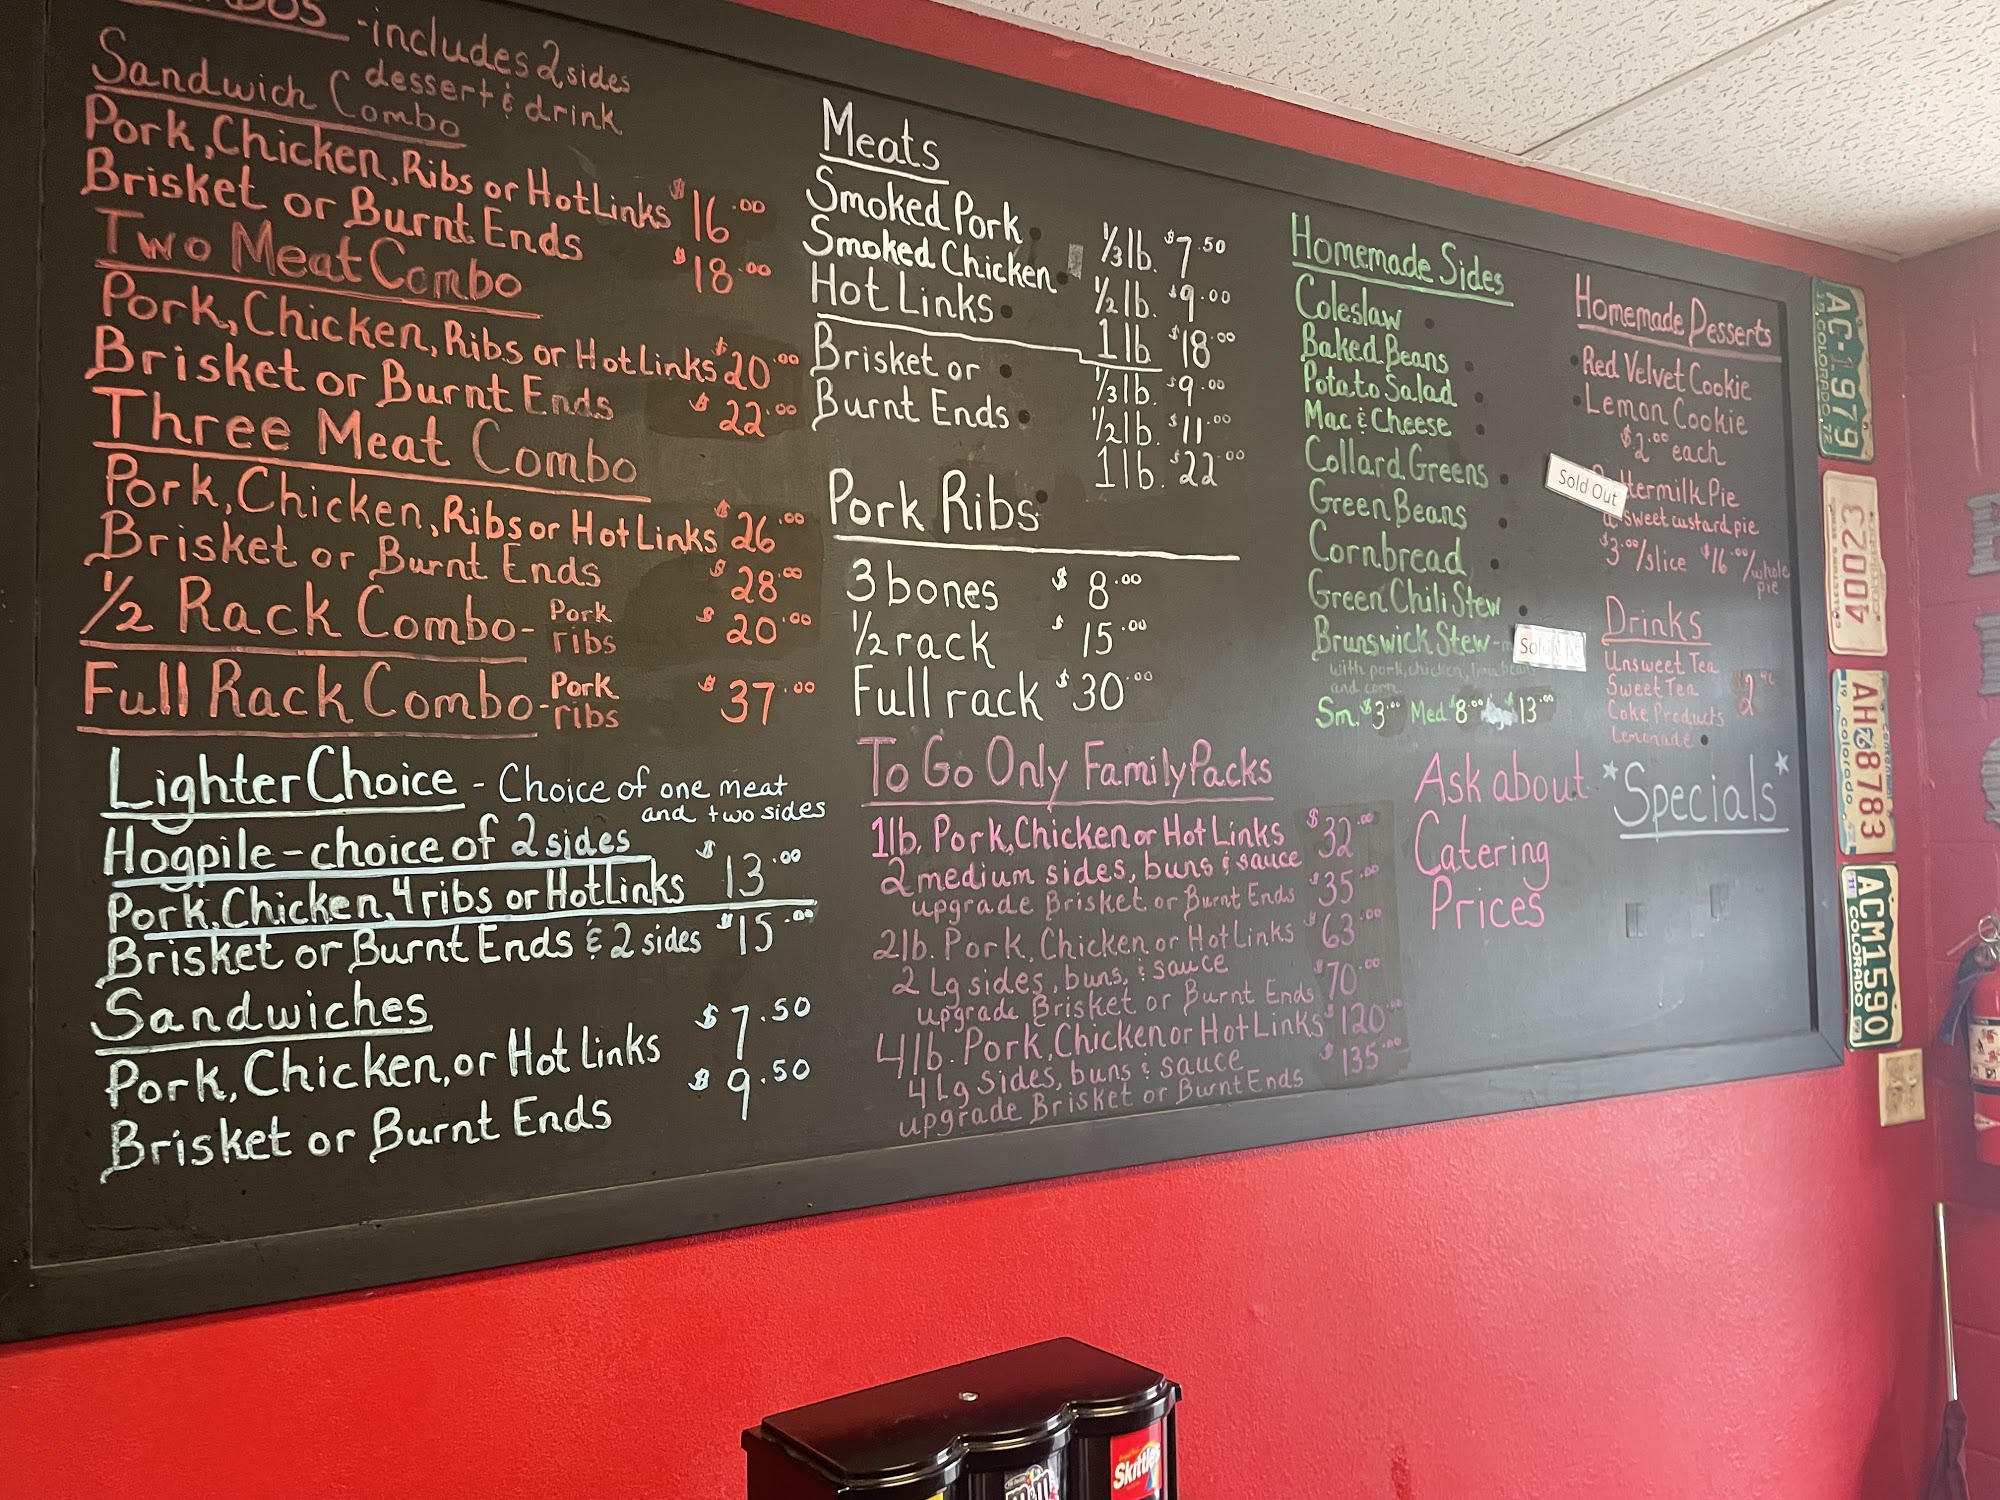 -includes 2 sides
dessert & drink
Sandwich Combo
Pork, Chicken, Ribs or Hot Links $16.00
Brisket or Burnt Ends $18.00
Two Meat Combo
Pork, Chicken, Ribs or Hot Links $20.00
Brisket or Burnt Ends $22.00
Three Meat Combo
Pork, Chicken, Ribs or Hot Links $26.00
Brisket or Burnt Ends $28.00
1/2 Rack Combo - Pork ribs $20.00
Full Rack Combo - Pork ribs $37.00
Lighter Choice - Choice of one meat
and two sides
Hogpile - choice of 2 sides
Pork, Chicken, 4 ribs or Hot Links $13.00
Brisket or Burnt Ends & 2 sides $15.00
Sandwiches
Pork, Chicken, or Hot Links $7.50
Brisket or Burnt Ends $9.50
Meats
Smoked Pork 1/3 lb. $7.50
Smoked Chicken 1/2 lb. $9.00
Hot Links 1 lb $18.00
Brisket or 1/3 lb. $9.00
Burnt Ends 1/2 lb. $11.00
1 lb. $22.00
Pork Ribs
3 bones $8.00
1/2 rack $15.00
Full rack $30.00
To Go Only Family Packs
1 lb. Pork, Chicken or Hot Links $32.00
2 medium sides, buns & sauce
upgrade Brisket or Burnt Ends $35.00
2 lb. Pork, Chicken, or Hot Links $63.00
2 Lg sides, buns, & sauce
upgrade Brisket or Burnt Ends $70.00
4 lb. Pork, Chicken or Hot Links $120.00
4 Lg sides, buns & sauce
upgrade Brisket or Burnt Ends $135.00
Homemade Sides
Coleslaw
Baked Beans
Potato Salad
Mac & Cheese
Collard Greens
Green Beans
Cornbread
Green Chili Stew
Brunswick Stew -
with pork, chicken, lima bean
and corn
Sm. $3.00 Med $8.00 $13.00
Ask about
Catering
Prices
Homemade Desserts
Red Velvet Cookie
Lemon Cookie
$2.00 each
Sold Out
termilk Pie
a sweet custard pie
$3.00/slice $16.00/whole pie
Drinks
Unsweet Tea
Sweet Tea
Coke Products
Lemonade
*Specials*
AC-1979
COLORADO 72
40023
AH28783
19 colorado
centennial
ACM1590
COLORADO
m&m
Skittles